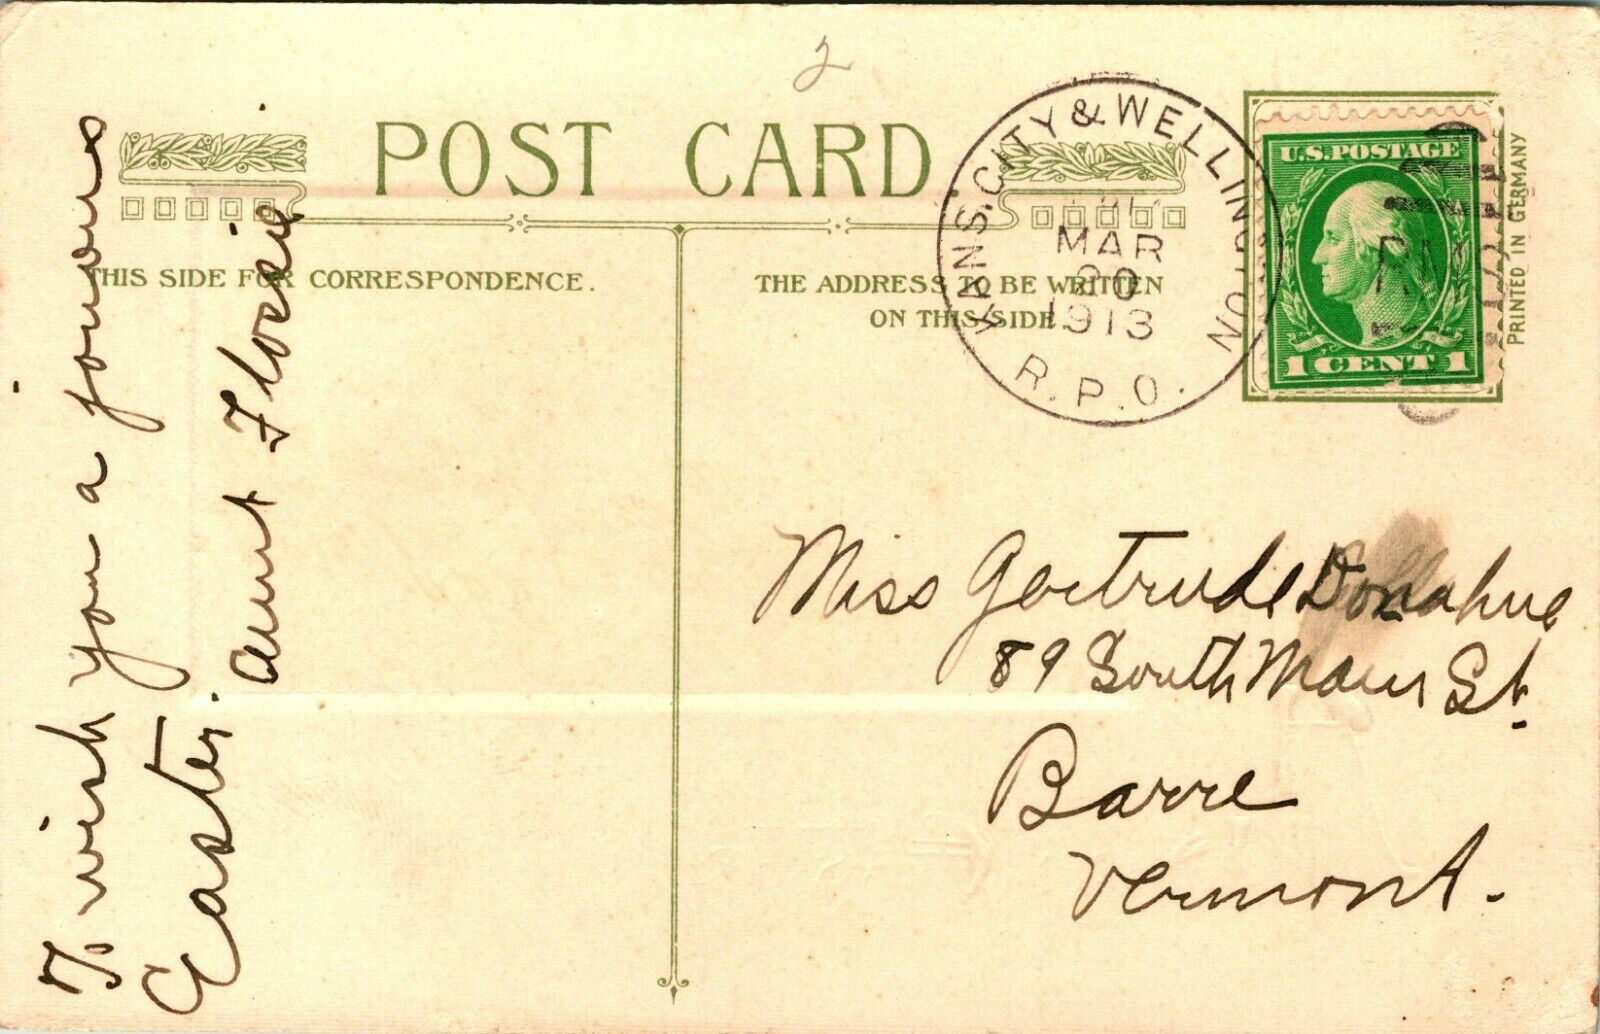 2
POST CARD
THIS SIDE FOR CORRESPONDENCE.
THE ADDRESS TO BE WRITTEN
ON THIS SIDE.
KANS. CITY & WELLINGTON
MAR
20
1913
R.P.O.
U.S.POSTAGE
1 CENT 1
PRINTED IN GERMANY
To wish you a joyous
Easter.
Aunt Flossie
Miss Gertrude Donahue
89 South Main St.
Barre
Vermont.